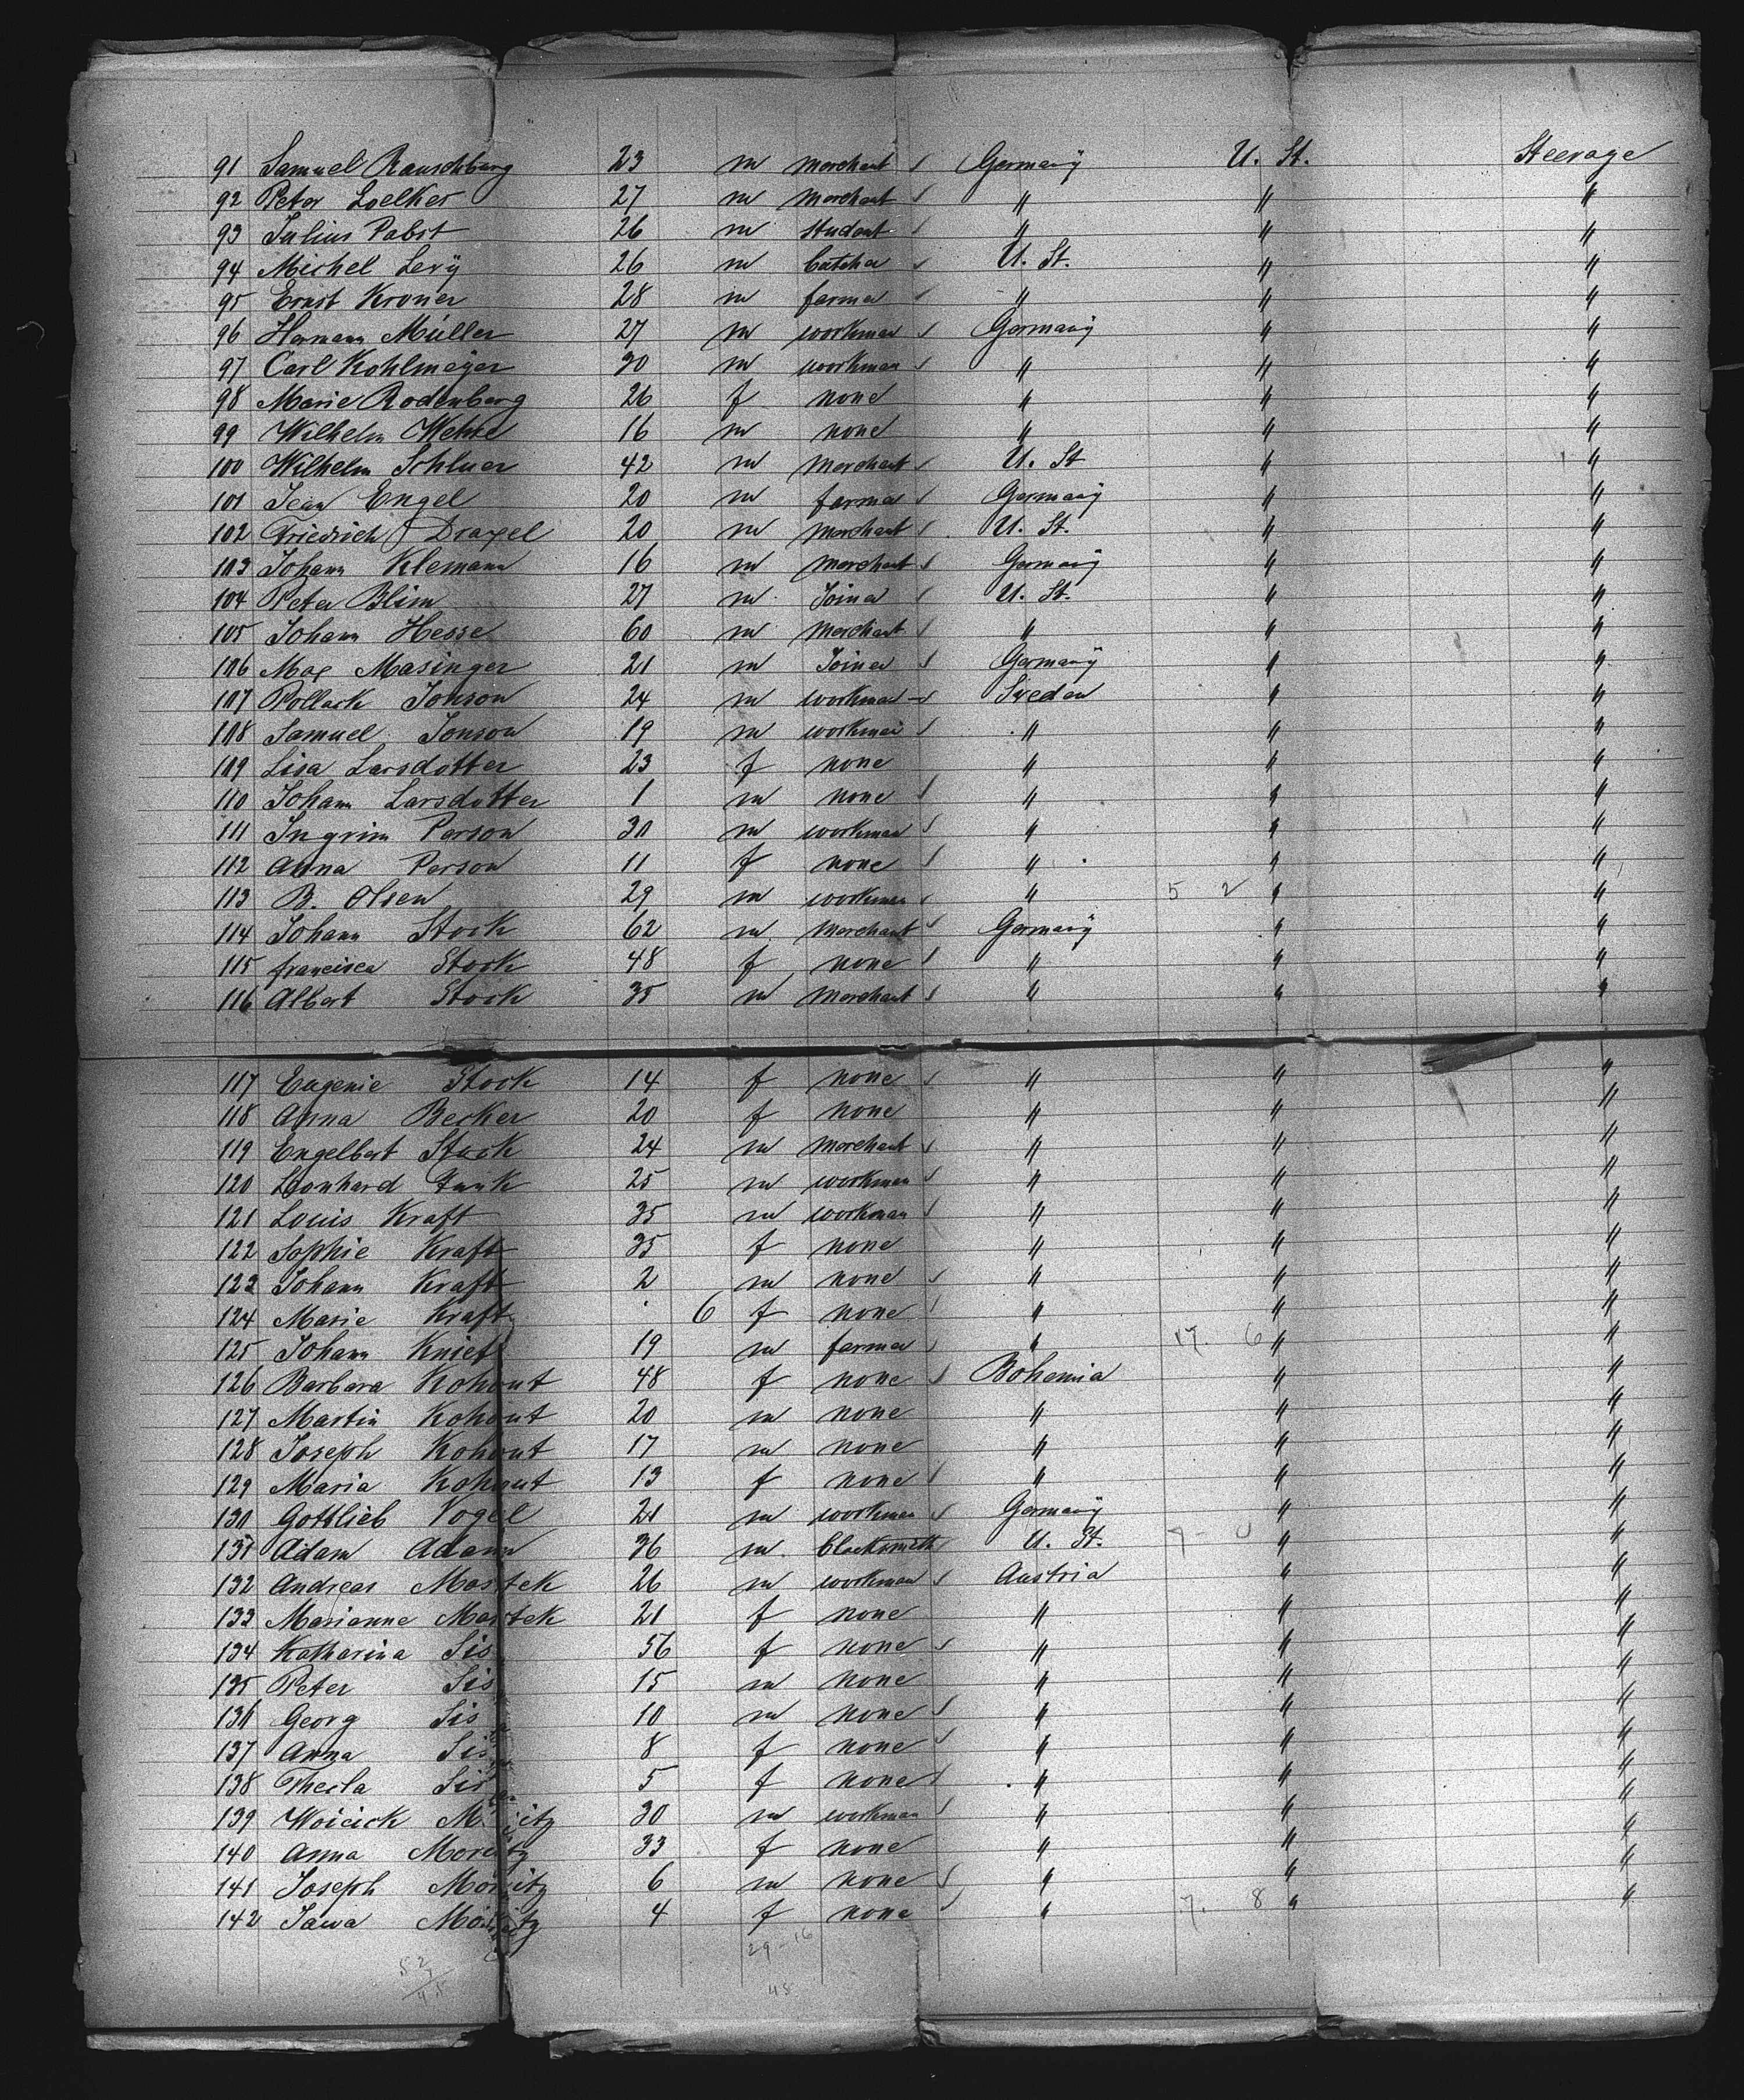 91 Samuel Rauschberg 23 m merchant Germany U. St. Steerage
92 Peter Loelkes 27 m merchant " " "
93 Julius Pabst 26 m student " " "
94 Michel Levÿ 26 m butcher U. St. " "
95 Ernst Kroner 28 m farmer " " "
96 Hermann Müller 27 m workman Germany " "
97 Carl Kohlmeyer 30 m workman " " "
98 Marie Rodenberg 26 f none " " "
99 Wilhelm 16 m none " " "
100 Wilhelm Schluer 42 m merchant U. St " "
101 Jean Engel 20 m farmer Germany " "
102 Friedrich Draxel 20 m merchant U. St. " "
103 Johann Klemann 16 m merchant Germany " "
104 Peter Blim 27 m Joiner U. St. " "
105 Johann Hesse 60 m merchant " " "
106 Max Masinger 21 m Joiner Germany " "
107 Pollack Jonson 24 m workman Sweden " "
108 Samuel Jonson 19 m workman " " "
109 Lisa Larsdotter 23 f none " " "
110 Johann Larsdotter 1 m none " " "
111 Ingrim Person 30 m workman " " "
112 Anna Person 11 f none " " "
113 B. Olsen 29 m workman " 5 2 " "
114 Johann Stock 62 m merchant Germany " "
115 francisca Stock 48 f none " " "
116 Albert Stock 35 m merchant " " "
117 Eugenie Stock 14 f none " " "
118 Anna Becker 20 f none " " "
119 Engelbert Stock 24 m merchant " " "
120 Leonhard Funk 25 m workman " " "
121 Louis Kraft 35 m workman " " "
122 Sophie Kraft 35 f none " " "
123 Johann Kraft 2 m none " " "
124 Marie Kraft 6 f none " " "
125 Johann Knief 19 m farmer " 17. 6 " "
126 Barbara Kohout 48 f none Bohemia " "
127 Martin Kohout 20 m none " " "
128 Joseph Kohout 17 m none " " "
129 Maria Kohout 13 f none " " "
130 Gottlieb Vogel 21 m workman Germany " "
131 Adam Adam 36 m blacksmith U. St. " "
132 Andreas Mastek 26 m workman Austria " "
133 Marianne Mastek 21 f none " " "
134 Katharina Sis 56 f none " " "
135 Peter Sis 15 m none " " "
136 Georg Sis 10 m none " " "
137 Anna Sis 8 f none " " "
138 Thecla Sis 5 f none " " "
139 Woicick 30 m workman " " "
140 Anna Moritz 33 f none " " "
141 Joseph Moritz 6 m none " " "
142 Moritz 4 f none " 7. 8 " "
29-16
48